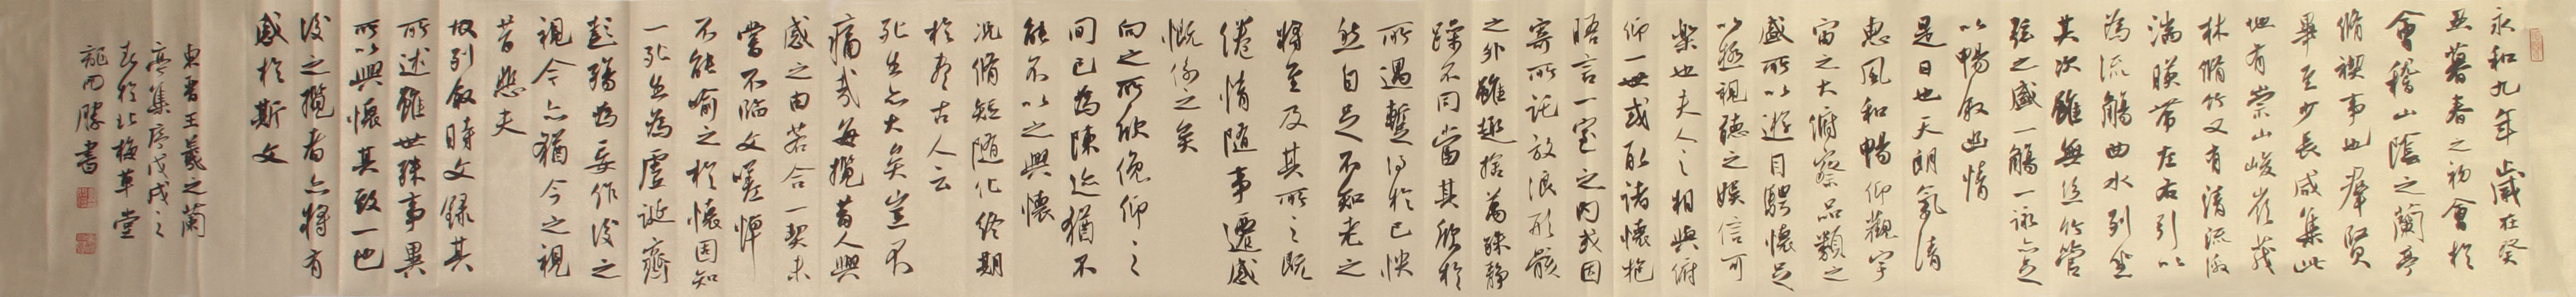 永和九年歲在癸
丑暮春之初會於
會稽山陰之蘭亭
脩禊事也羣賢
畢至少長咸集此
地有崇山峻嶺茂
林脩竹又有清流激
湍暎帶左右引以
為流觴曲水列坐
其次雖無絲竹管
弦之盛一觴一詠亦足
以暢敘幽情
是日也天朗氣清
惠風和暢仰觀宇
宙之大俯察品類之
盛所以遊目騁懷足
以極視聽之娛信可
樂也夫人之相與俯
仰一世或取諸懷抱
晤言一室之內或因
寄所託放浪形骸
之外雖趣捨萬殊靜
躁不同當其欣於
所遇蹔得於己怏
然自足不知老之
將至及其所之既
倦情隨事遷感
慨係之矣
向之所欣俛仰之
間已為陳迹猶不
能不以之興懷
況脩短隨化終期
於盡古人云
死生亦大矣豈不
痛哉每攬昔人興
感之由若合一契未
嘗不臨文嗟悼
不能喻之於懷固知
一死生為虛誕齊
彭殤為妄作後之
視今亦猶今之視
昔悲夫
故列敘時文錄其
所述雖世殊事異
所以興懷其致一也
後之攬者亦將有
感於斯文
東晉王羲之蘭
亭集序戊戌之
春於北梅草堂
勝書